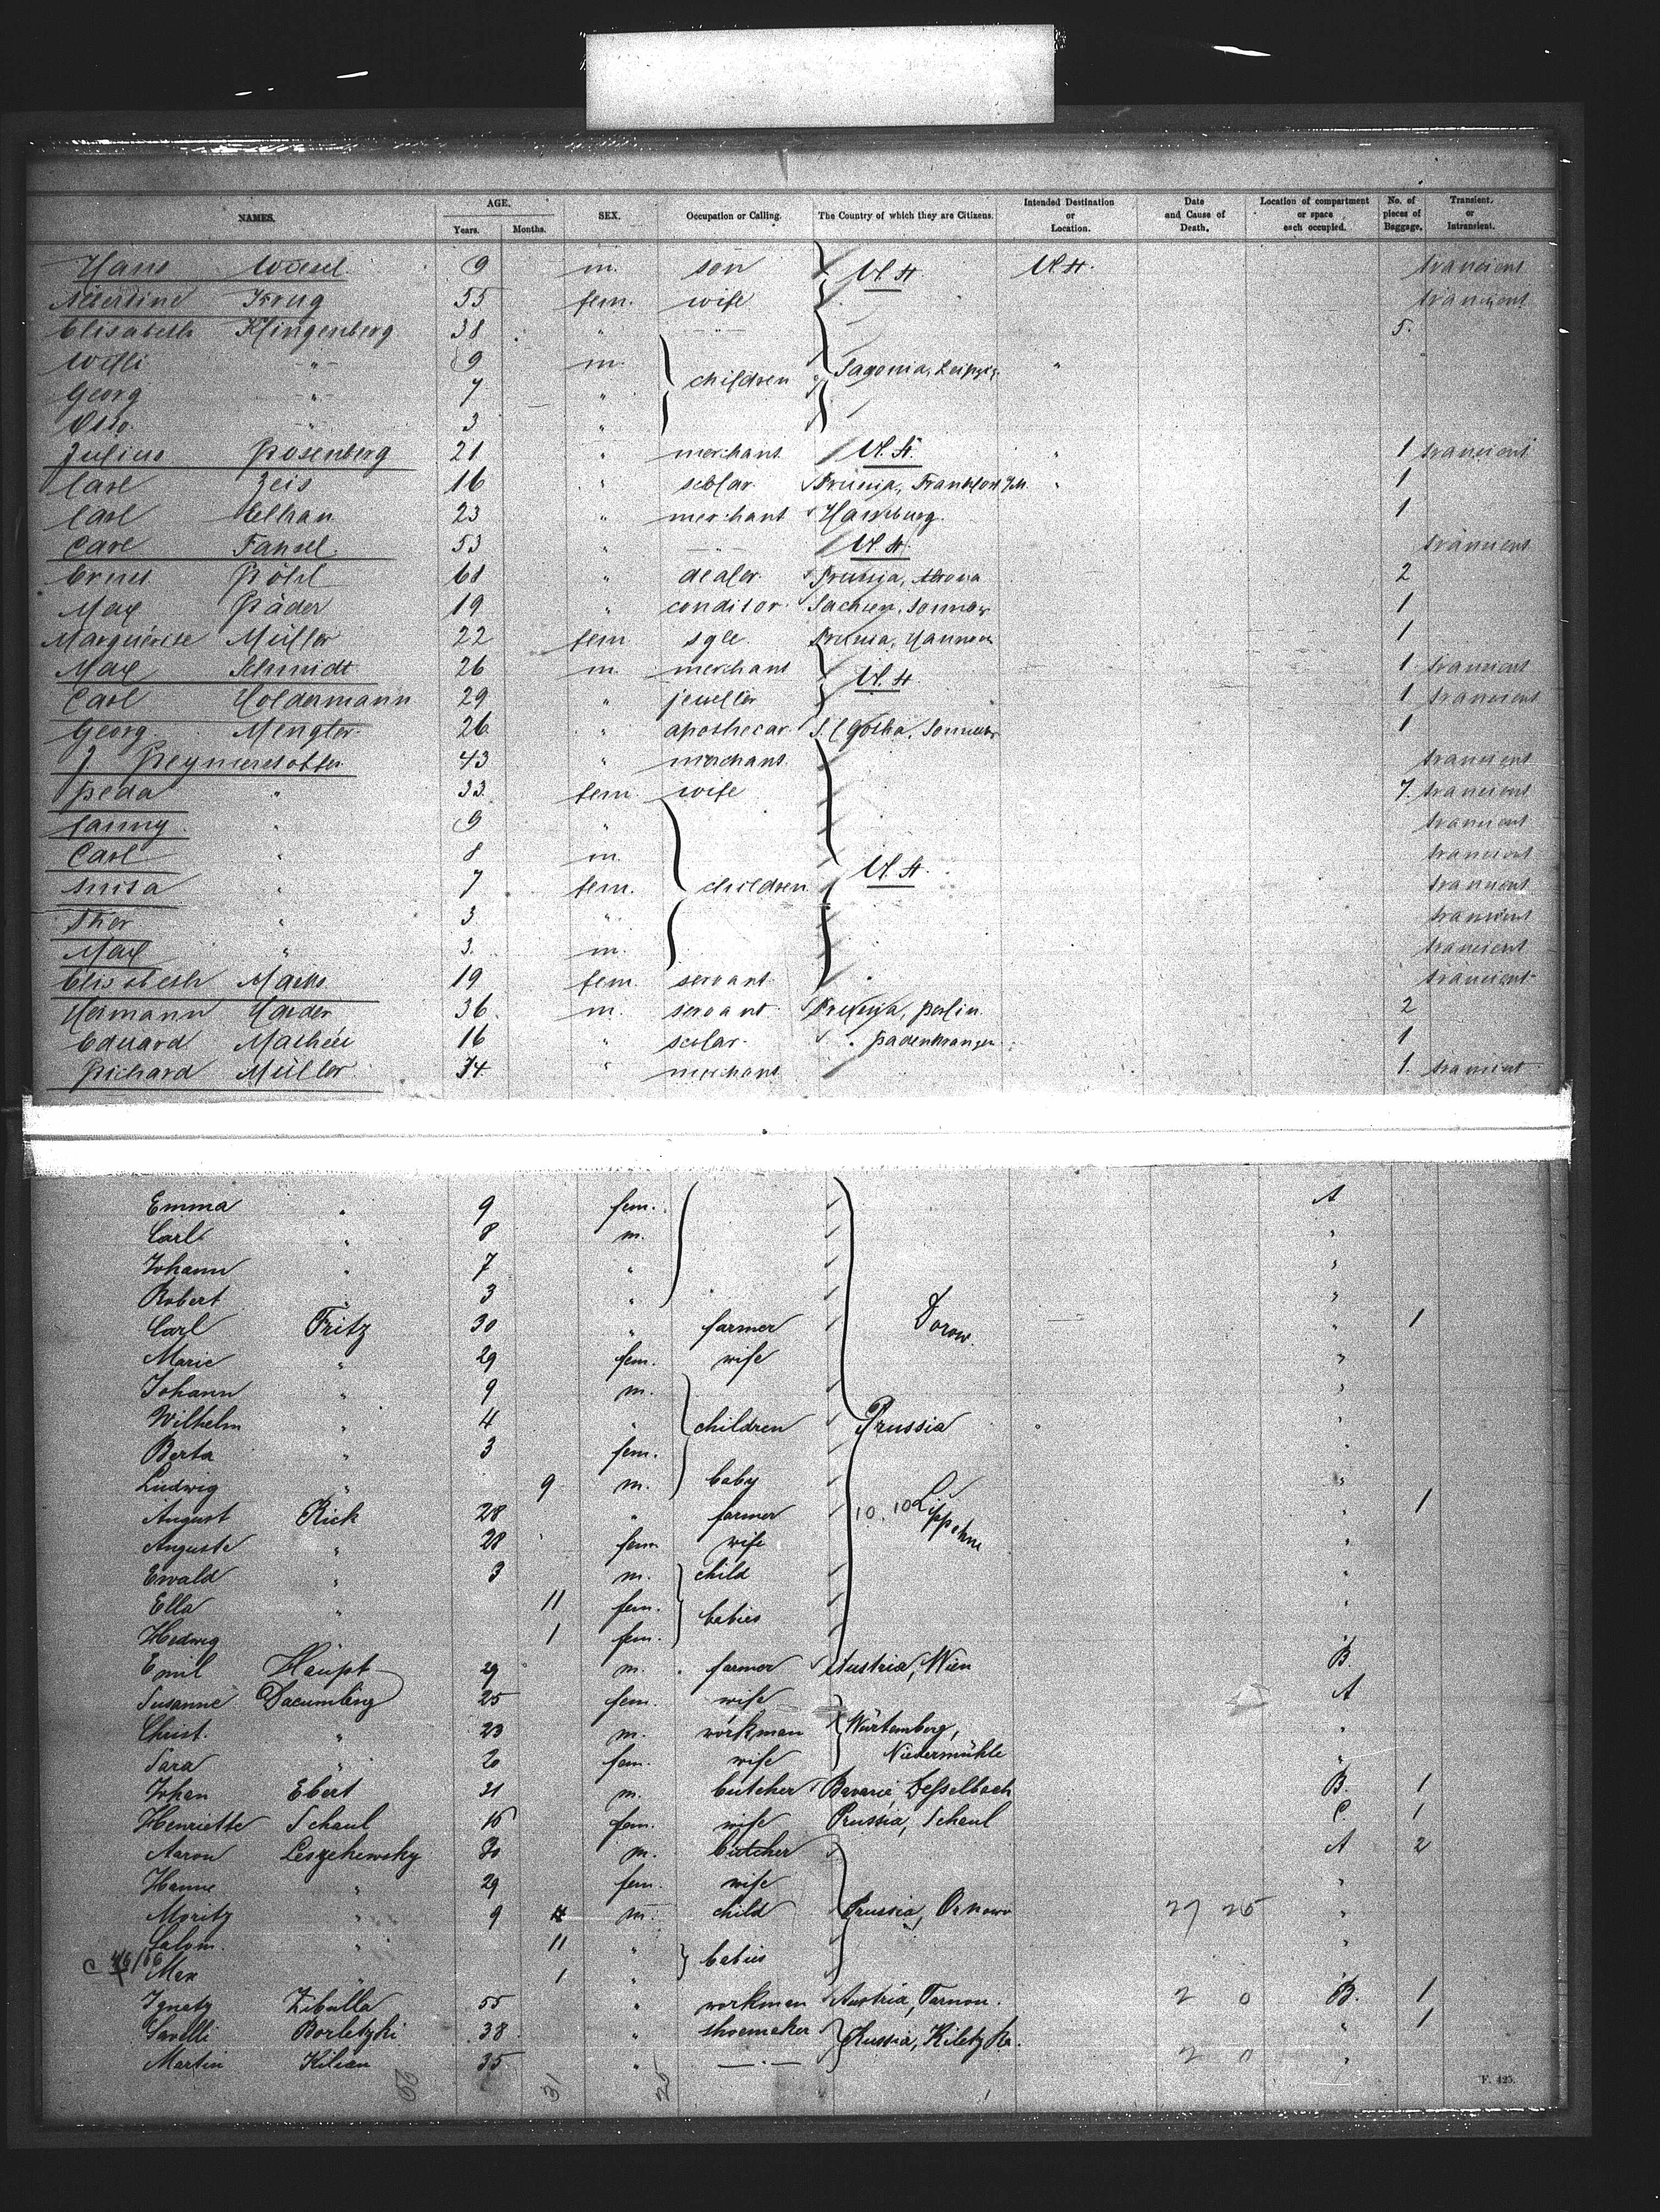 NAMES. AGE. Years. Months. SEX. Occupation or Calling. The Country of which they are Citizens. Intended Destination or Location. Date and Cause of Death. Location of compartment or space each occupied. No. of pieces of Baggage. Transient. or Intransient.
Hans 9 m. son U. St. U. St. transient
55 fem. wife transient
Elisabeth Klingenberg 38 " 5.
Willi " 9 m.
Georg " 7 " children Leipzig "
Otto " 3 "
Julius Rosenberg 21 " merchant U. St. " 1 transient
Carl Zeis 16 " scolar Prussia, Frankfort "  1
Carl 23 " merchant Hamburg 1
Carl Fansel 53 " U. St. transient
Ernst 61 " dealer Prussia, 2
Max Räder 19 " conditor Sachsen, 1
Müller 22 fem sgle Prussia, Hannover 1
Max Schmidt 26 m. merchant U. St. 1 transient
Carl Holdermann 29 " jeweller 1 transient
Georg Mengter 26 " apothecar Gotha, 1
J. 43 " merchant transient
" 33 fem. wife 7 transient
Fanny " 9 " transient
Carl " 8 m. transient
Luisa " 7 fem. children U. St. transient
Ther " 3 " transient
Max " 3. m. transient
Elisabeth 19 fem. servant transient
Hermann Harder 36. m. servant Prussia, Berlin 2
Eduard 16 " scolar " 1
Richard Müller 34 " merchant 1. transient
Emma " 9 fem. A
Carl " 8 m. "
Johann " 7 " "
Robert " 3 " "
Carl Fritz 30 " farmer Dorow. " 1
Marie " 29 fem. wife "
Johann " 9 m. "
Wilhelm " 4 " children Prussia "
Berta " 3 fem. "
Ludwig " 9 m. baby "
August Rick 28 " farmer 10. 10 Lippehne " 1
Auguste " 28 fem wife "
Ewald " 3 m. child "
Ella " 11 fem. babies "
Hedwig 1 fem. "
Emil Haupt 29 m. farmer Austria, Wien B.
Susanne Daeumling 25 fem. wife A
Christ. " 23 m. workman Würtemberg, "
Sara " 20 fem. wife Niedermühle "
Johan Ebert 31 m. butcher Bavaria, B. 1
Henriette Schaul 16 fem. wife Prussia, Schaul C 1
Aaron Leszchewsky 30 m. butcher A 2
Hanne " 29 fem. wife "
Moritz " 9 m. child Prussia, 27 26 "
Salom. " 11 " babies "
Max " 1 " "
Ignatz Zibulla 55 " workman Austria, Tarnou. 2 0 B. 1
Savelli Borletzki 38 " shoemaker Russia, " 1
Martin Kilian 35 " — " — 2 0 "
31 25
F. 425.